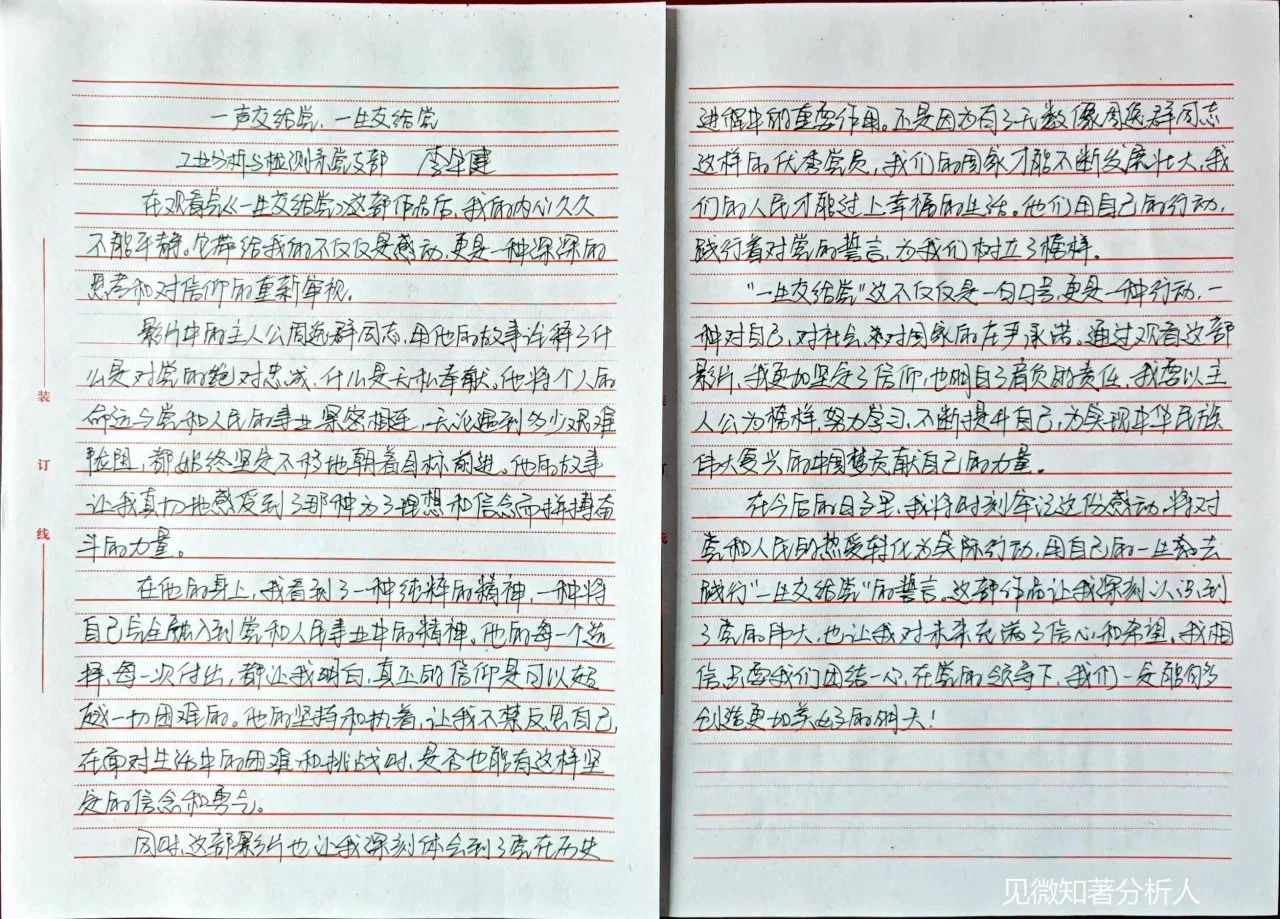 一声交给党、一生交给党
工业分析与检测系党支部 李年健
在观看完《一生交给党》这部作品后,我的内心久久
不能平静。它带给我的不仅仅是感动,更是一种深深的
思考和对信仰的重新审视。
影片中的主人公周逸群同志,用他的故事诠释了什
么是对党的绝对忠诚、什么是无私奉献。他将个人的
命运与党和人民的事业紧密相连,无论遇到多少艰难
险阻,都始终坚定不移地朝着目标前进。他的故事
让我真切地感受到了那种为了理想和信念而拼搏奋
斗的力量。
在他的身上,我看到了一种纯粹的精神,一种将
自己完全融入到党和人民事业中的精神。他的每一个选
择,每一次付出,都让我明白,真正的信仰是可以超
越一切困难的。他的坚持和执着,让我不禁反思自己
在面对生活中的困难和挑战时,是否也能有这样坚
定的信念和勇气。
同时,这部影片也让我深刻体会到了党在历史
进程中的重要作用。正是因为有了无数像周逸群同志
这样的优秀党员,我们的国家才能不断发展壮大,我
们的人民才能过上幸福的生活。他们用自己的行动,
践行着对党的誓言,为我们树立了榜样。
"一生交给党"这不仅仅是一句口号,更是一种行动,一
种对自己,对社会,对国家的庄严承诺。通过观看这部
影片,我更加坚定了信仰,也明白了肩负的责任,我要以主
人公为榜样,努力学习,不断提升自己,为实现中华民族
伟大复兴的中国梦贡献自己的力量。
在今后的日子里,我将时刻牢记这份感动,将对
党和人民的热爱转化为实际行动,用自己的一生去
践行"一生交给党"的誓言。这部作品让我深刻认识到
了党的伟大,也让我对未来充满了信心和希望。我相
信只要我们团结一心,在党的领导下,我们一定能够
创造更加美好的明天!
装
订
线
见微知著分析人